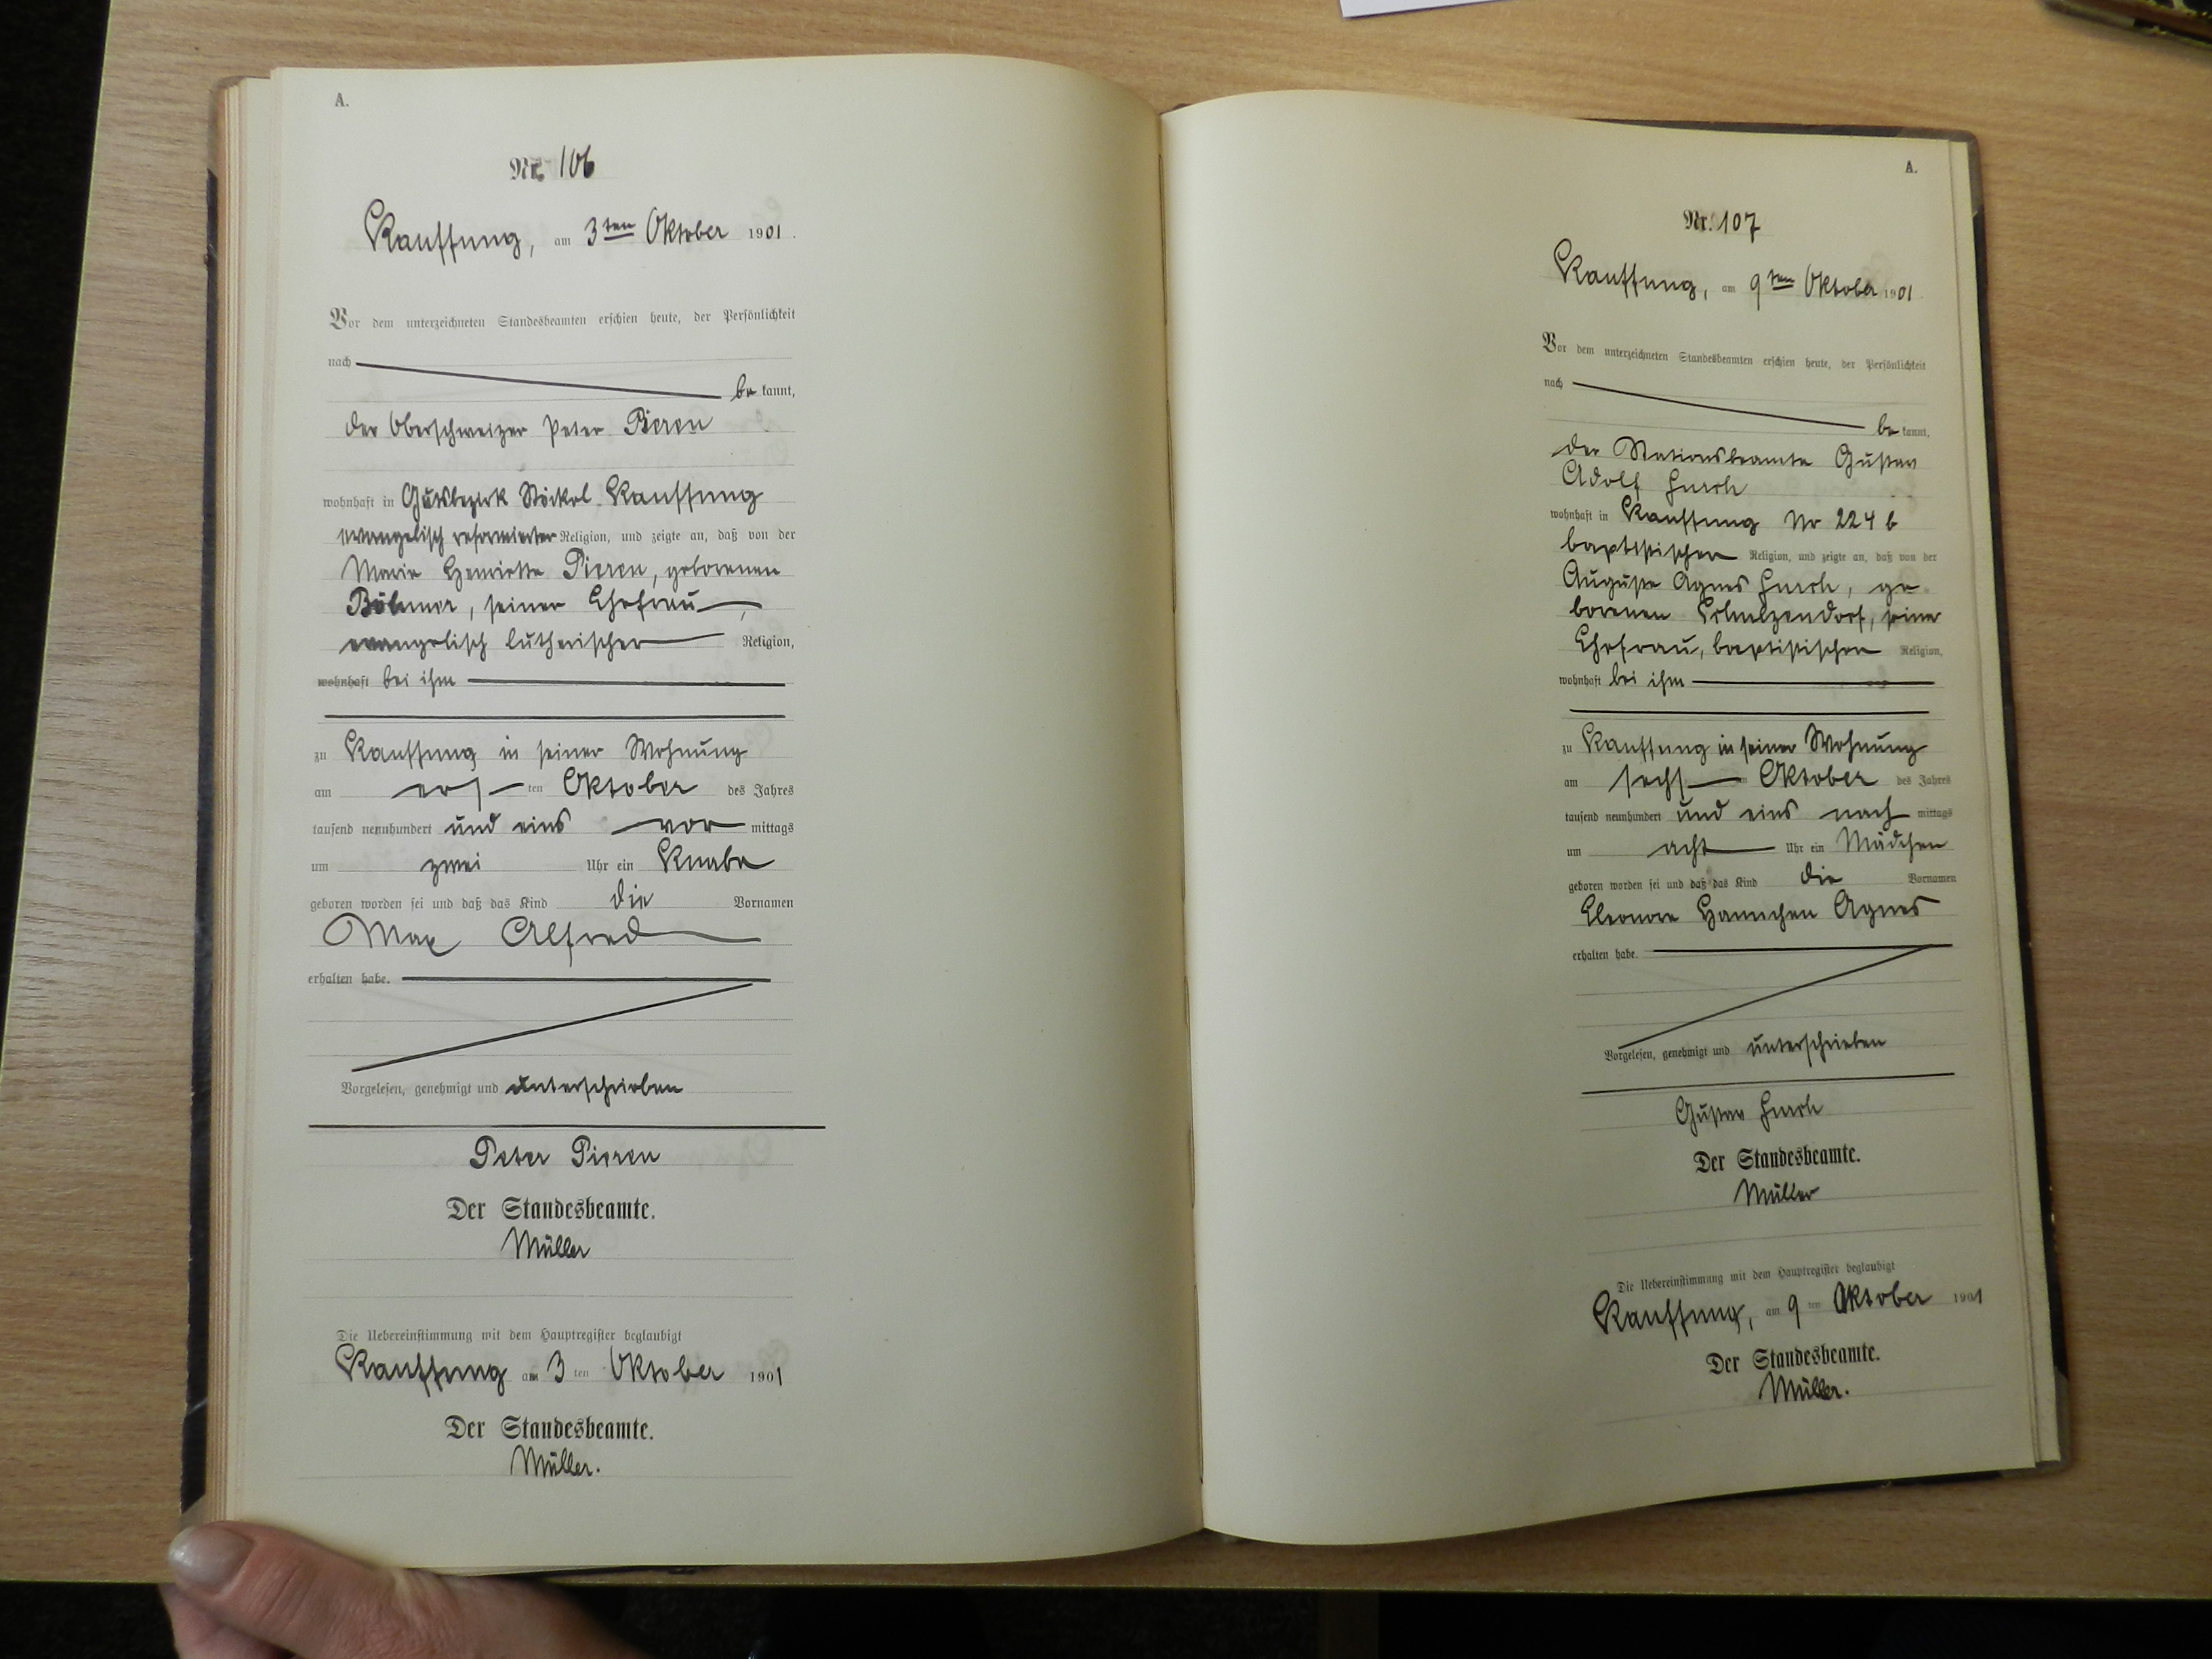 A.
Nr. 106
Kauffung, am 3ten Oktober 1901.
Vor dem unterzeichneten Standesbeamten erschien heute, der Persönlichkeit
nach
be kannt,
der Oberschweizer Peter Pieren
wohnhaft in Gutsbezirk Stöckel-Kauffung
evangelisch reformierter Religion, und zeigte an, daß von der
Marie Henriette Pieren, geborenen
Böhmer, seiner Ehefrau,
evangelisch lutherischer Religion,
wohnhaft bei ihm
zu Kauffung in seiner Wohnung
am ersten Oktober des Jahres
tausend neunhundert und eins vor mittags
um zwei Uhr ein Knabe
geboren worden sei und daß das Kind die Vornamen
Max Alfred
erhalten habe.
Vorgelesen, genehmigt und unterschrieben
Peter Pieren
Der Standesbeamte.
Müller
Die Uebereinstimmung mit dem Hauptregister beglaubigt
Kauffung am 3 ten Oktober 1901
Der Standesbeamte.
Müller.
A.
Nr. 107
Kauffung, am 9ten Oktober 1901
Vor dem unterzeichneten Standesbeamten erschien heute, der Persönlichkeit
nach
be kannt,
der Stationsbeamte Gustav
Adolf
wohnhaft in Kauffung Nr 224 b
baptistischer Religion, und zeigte an, daß von der
Auguste Agnes ge
borenen Schulzendorf, seiner
Ehefrau, baptistischer Religion,
wohnhaft bei ihm
zu Kauffung in seiner Wohnung
am sechsten Oktober des Jahres
tausend neunhundert und eins nach mittags
um acht Uhr ein Mädchen
geboren worden sei und daß das Kind die Vornamen
Eleonore Hannchen Agnes
erhalten habe.
Vorgelesen, genehmigt und unterschrieben
Gustav
Der Standesbeamte.
Müller
Die Uebereinstimmung mit dem Hauptregister beglaubigt
Kauffung, am 9 ten Oktober 1901
Der Standesbeamte.
Müller.